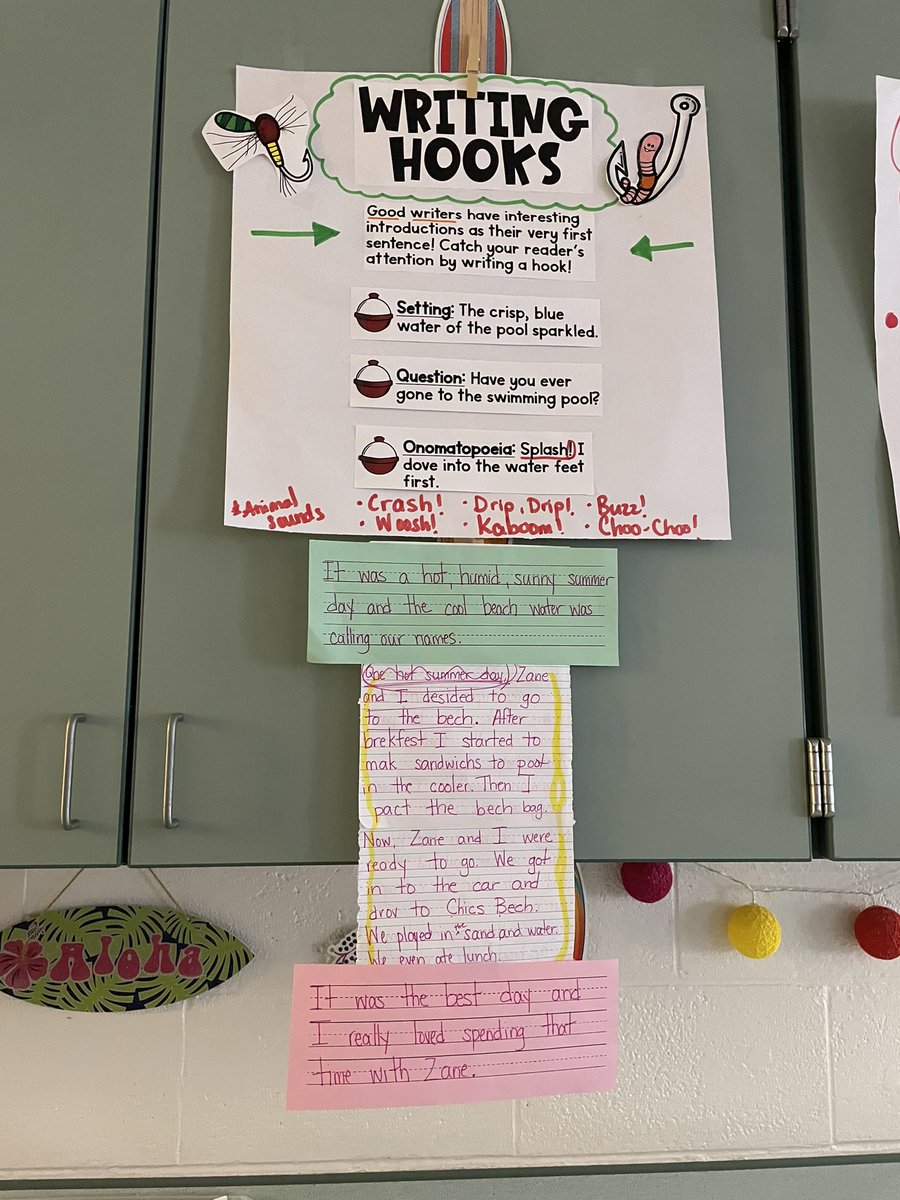 WRITING
HOOKS
Good writers have interesting
introductions as their very first
sentence! Catch your reader's
attention by writing a hook!
Setting: The crisp, blue
water of the pool sparkled.
Question: Have you ever
gone to the swimming pool?
Onomatopoeia: Splash! I
dove into the water feet
first.
*Animal
sounds
• Crash! • Drip, Drip! • Buzz!
• Woosh! • Kaboom! • Choo-Choo!
It was a hot, humid, sunny summer
day and the cool beach water was
calling our names.
One hot summer day, Zane
and I desided to go
to the bech. After
brekfest I started to
mak sandwichs to poot
in the cooler. Then I
pact the bech bag.
Now, Zane and I were
ready to go. We got
in to the car and
drov to Chics Bech.
We played in the sand and water.
We even ate lunch.
It was the best day and
I really loved spending that
time with Zane.
Aloha